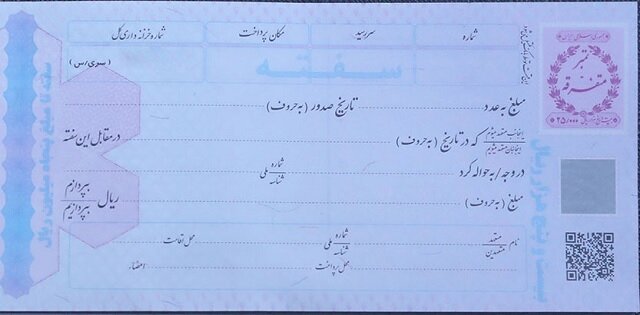 شماره
سررسید
مکان پرداخت
شماره خزانه داری کل
سفته
(سری/س)
مبلغ به عدد تاریخ صدور (به حروف)
اینجانب متعهد میشوم
اینجانبان متعهد میشویم
که در تاریخ (به حروف) در مقابل این سفته
در وجه / به حواله کرد
شماره ملی
شناسه
مبلغ (به حروف) ریال
بپردازم
بپردازیم
نام
متعهد
متعهدین
شماره ملی
شناسه
محل اقامت
محل پرداخت
امضاء
سفته تا مبلغ پنجاه میلیون ریال
بیست و پنج هزار ریال
جمهوری اسلامی ایران
تمبر
متفرقه
۲۵/۰۰۰